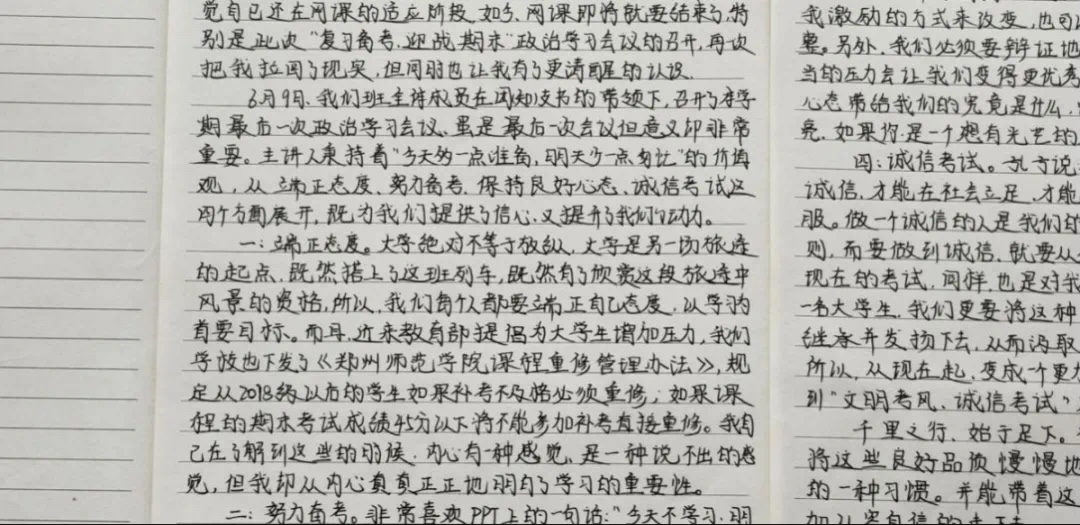 觉自己还在网课的适应阶段。如今,网课即将就要结束了,特
别是此次“复习备考,迎战期末”政治学习会议的召开,再次
把我拉回了现实,但同时也让我有了更清醒的认识。
6月9日,我们班全体成员在团知支书的带领下,召开了本学
期最后一次政治学习会议。虽是最后一次会议但意义却非常
重要。主讲人秉持着“今天多一点准备,明天少一点对比”的价值
观,从端正态度、努力备考、保持良好心态、诚信考试这
四个方面展开,既为我们提供了信心,又提升了我们的动力。
一:端正态度。大学绝对不等于放纵,大学是另一切旅途
的起点,既然搭上了这班列车,既然有了欣赏这段旅途中
风景的资格,所以,我们每个人都要端正自己态度,以学习为
首要目标。而且,近来教育部提倡为大学生增加压力,我们
学校也下发了《郑州师范学院课程重修管理办法》,规
定从2018级以后的学生如果补考不及格必须重修,如果课
程的期末考试成绩45分以下将不能参加补考直接重修。我自
己在了解到这些的时候,内心有一种感觉,是一种说不出的感
觉,但我却从内心真真正正地明白了学习的重要性。
二:努力备考。非常喜欢PPT上的一句话:“今天不学习,明
我激励的方式来改变,也可
整。另外,我们必须要辩证地
当的压力会让我们变得更优秀
心态带给我们的究竟是什么,
亮,如果你是一个想有光芒的
四:诚信考试。孔子说
诚信,才能在社会立足,才能
服。做一个诚信的人是我们的
则,而要做到诚信,就要从
现在的考试,同样,也是对我
一名大学生,我们更要将这种
继承并发扬下去,从而汲取
所以,从现在起,变成一个更
到“文明考风、诚信考试”
千里之行,始于足下。
将这些良好品质慢慢地
的一种习惯。并能带着这